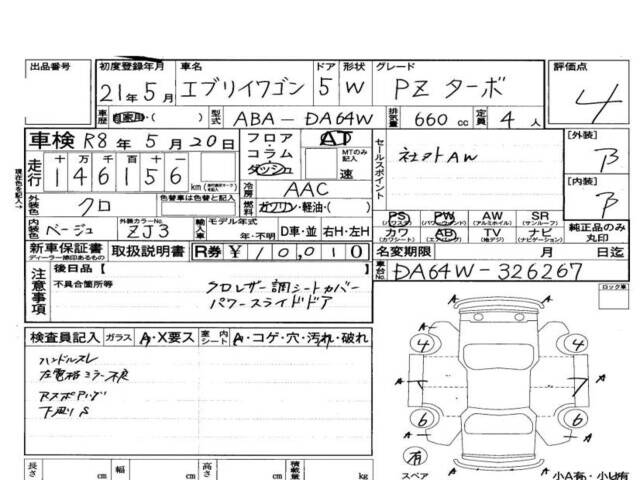 出品番号
初度登録年月 21年5月
車名 エブリイワゴン
ドア 5
形状 W
グレード PZ ターボ
評価点 4
車歴 自家用・( )
型式 ABA-DA64W
排気量 660 cc
定員 4人
車検 R8年5月20日
フロア・コラム・ダッシュ
AT
MTのみ記入
速
セールスポイント
社外AW
[外装] B
[内装] B
現在色を記入
走行 十万千百十一
146156 km
冷房 AAC
外装色 クロ
色替車は色替と記入
ガソリン・軽油・( )
内装色 ベージュ
外装カラーNo. ZJ3
輸入車
モデル年式
年・不明
D車・並
右H・左H
PS (パワステ)
PW (パワーウィンドウ)
AW (アルミホイル)
SR (サンルーフ)
カワ (カワシート)
AB (エアバッグ)
TV (地デジ)
ナビ (ナビゲーション)
純正品のみ丸印
新車保証書
ディーラー捺印あるもの
取扱説明書
R券 ¥10,010
名変期限 月 日迄
車台No. DA64W-326267
注意事項
後日品【
不具合箇所等
クロレザー調シートカバー
パワースライドドア
ロック車
検査員記入
ガラス A・X要ス
室内シート A・コゲ・穴・汚れ・破れ
ハンドルスレ
左電格ミラー不良
下廻りS
A
4 4
A A
6 6
A
有
スペア
小A有・小U有
長さ cm
幅 cm
高さ cm
積載量 kg